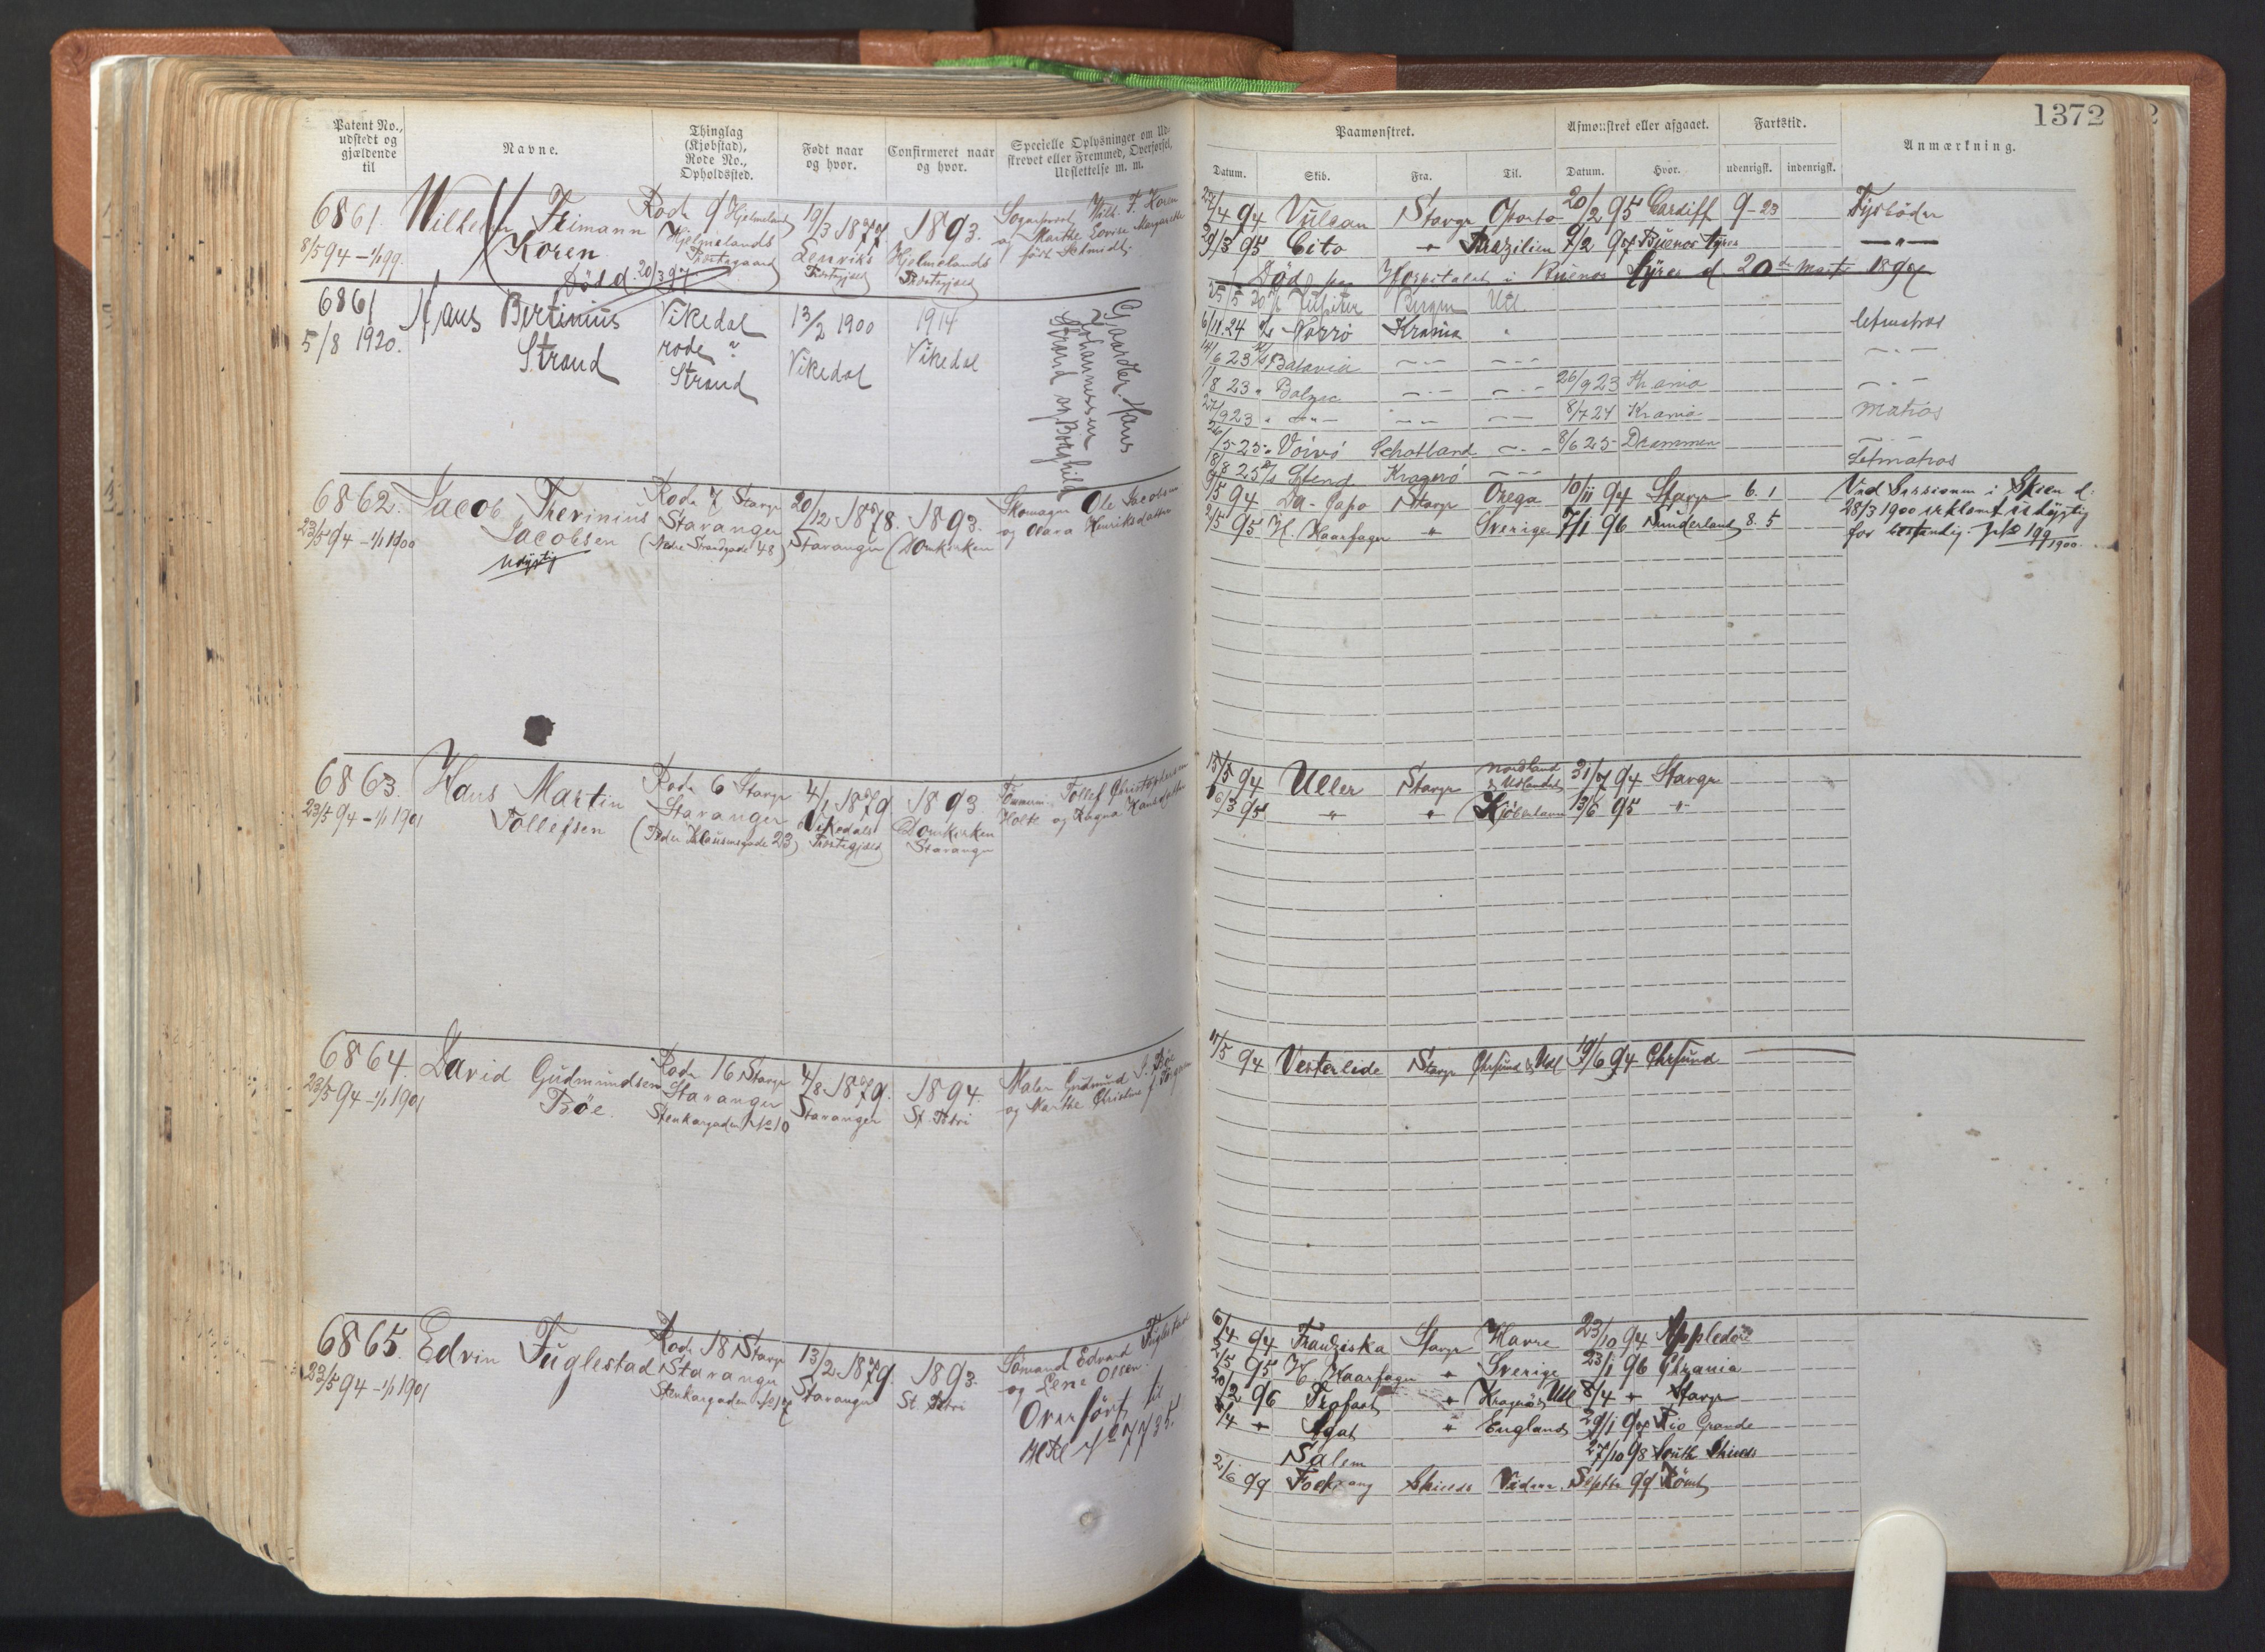 1372
Patent No.,
udstedt og
gjældende
til
Navne.
Thinglag
(Kjøbstad),
Rode No.,
Opholdssted.
Født naar
og hvor.
Confirmeret naar
og hvor.
Specielle Oplysninger om Ud-
skrevet eller Fremmed, Overførsel,
Udslettelse m. m.
Paamønstret.
Afmønstret eller afgaaet.
Fartstid.
Anmærkning.
Datum.
Skib.
Fra.
Til.
Datum.
Hvor.
udenrigsk.
indenrigsk.
6861.
8/5 94 - 1/1 99.
Wilhelm
Koren
Död d. 20/3 97.
Rode 9 Hjelmeland
Hjelmelands
Prestegaard
19/3 1877.
Lenviks
Prestegjeld
1893.
Hjelmelands
Prestegjeld
Sogneprest Wilh. F. Koren
og Marthe Lovise Margarethe
født Schmidt.
94 Vulcan Stavgr Oporto 20/2 95 Cardiff 9-23
95 Cito " Brazilien Buenos Ayres — " —
Död paa Hospitalet i Buenos Ayres d. 20de Marts 1897
6861
5/8 1920.
Hans Bertinius
Strand
Vikedal
rode 2
Strand
13/2 1900
Vikedal
1914
Vikedal
Gaardbr. Hans
Johannessen
Strand og Borghild
25/5 20 Jupiter Bergen Utl.
6/11 24 Krania " letmatros
14/6 23 Batavia
1/8 23 Balzac 26/9 23 Krania
27/9 23 8/7 24 Krania Matros
26/5 25 Schotland 8/6 25 Drammen
18/8 25 Steng Kragerø Letmatros
6862.
23/5 94 - 1/1 1900
Jacob Therinius
Jacobsen
Udygtig
Rode 7 Stavgr
Stavanger
(Nedre Strandgade 48)
20/12 1878.
Stavanger
1893.
Domkirken
Skomager Ole Jacobsen
og Henriksdatter
5 94 Da-Capo Stavgr Onega 10/11 94 Stavgr 6. 1
2/5 95 H. Haarfager " Sverige 7/1 96 Sunderland 8. 5
Ved Sessionen i Skien d:
28/3 1900 erklæret udygtig
for bestandig. 199/1900.
6863.
23/5 94 - 1/1 1901
Hans Martin
Tollefsen
Rode 6 Stavgr
Stavanger
(Peder Klausensgade 23)
4/1 1879
Vikedals
Prestegjeld
1893
Domkirken
Stavanger
Tömmerm. Tollef Christophersen
Holte og Ragna Hansdatter
15/5 94 Uller Stavgr Nordland
& Udlandet 31/7 94 Stavgr
6/3 95 " " Kjöbenhavn 13/6 95 "
6864.
23/5 94 - 1/1 1901
David Gudmundsen
Böe.
Rode 16 Stavgr
Stavanger
Stenkargaden No 10
4/8 1879.
Stavanger
1894.
St. Petri
Maler Gudmund S. Böe
og Marthe Christine
11/5 94 Vesterlide Stavgr Chrsund & Udl 19/6 94 Chrsund
6865.
23/5 94 - 1/1 1901
Edvin Fuglestad
Rode 18 Stavgr
Stavanger
Stenkargaden
13/2 1879.
Stavanger
1893.
St. Petri
Sömand Edvard Fuglestad
og Lene Olsen.
Overført til
No 7735.
6/4 94 Franziska Stavgr Havre 23/10 94 Appledore
2/5 95 H. Haarfager " Sverige 23/1 96 Chrania
20/2 96 Trofast " Kragerö & Udl 8/4 " Stavgr
/4 " Agat " England 29/1 97 Rio Grande
Salem 27/10 98 South Shields
2/6 99 Shields Septbr 99 Römt